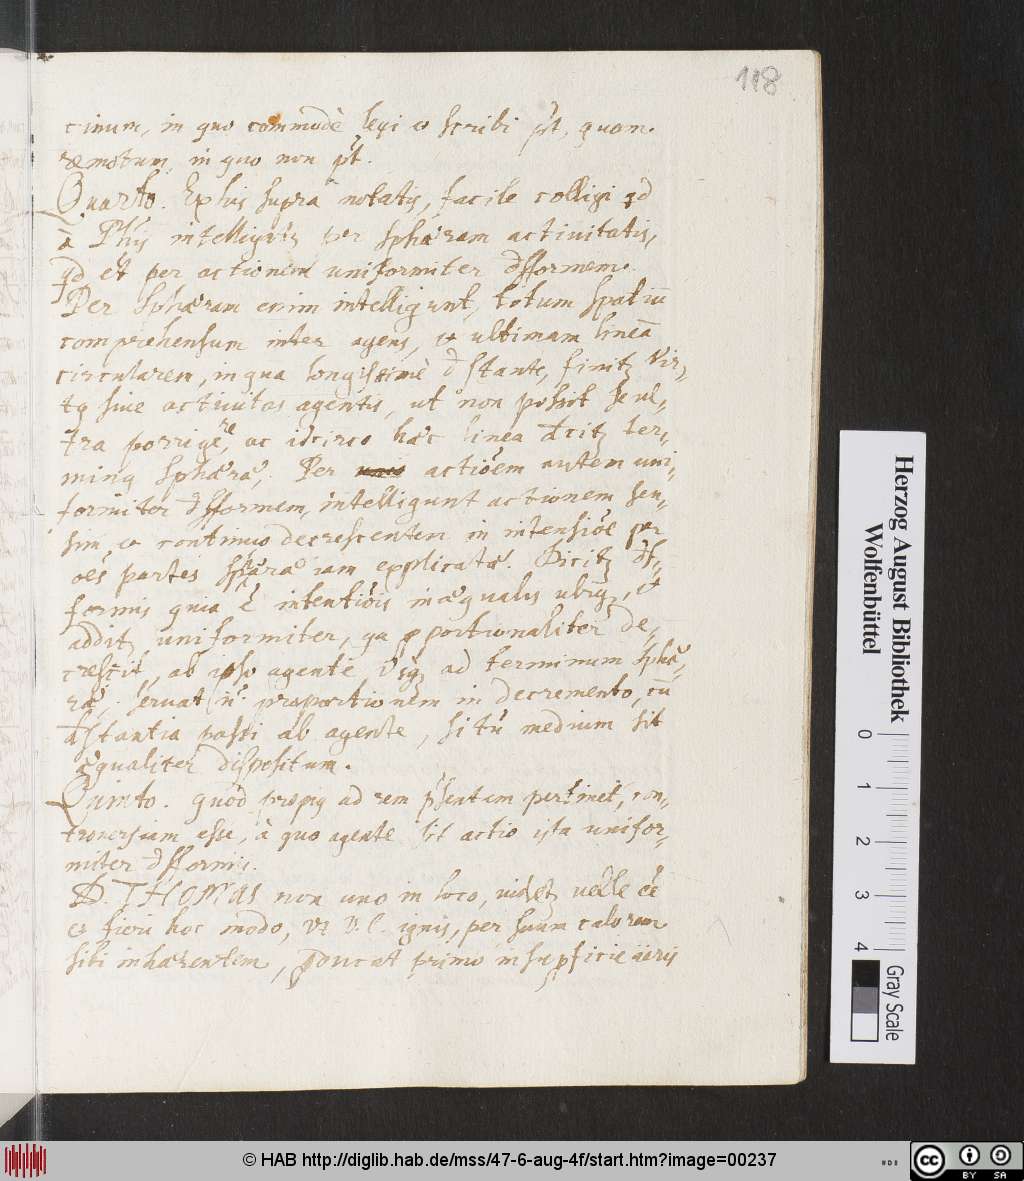 118
cinum, in quo commodè legi et scribi pt̃, quam
remotum, in quo non pt̃.
Quarto. Ex his supra notatis, facile colligi qd
à Phis intelligatꝫ per sphæram actiuitatis,
qd et per actionem uniformiter dfformem.
Per sphæram enim intelligunt, totum spatiū
comprehensum inter agens, et ultimam lineā
circularem, in qua longissimè dstante, finitꝫ vir,,
tꝯ siue actiuitas agentis, ut non possit se ul,,
tra porrigere, ac idcirco hæc linea dcitꝫ ter,,
minꝯ sphæræ. Per actiōem autem uni,,
formiter dfformem, intelligunt actionem sen,,
sim, et continuo decrescentem in intensiōe per
oēs partes sphæræ iam explicatæ. Dicitꝫ df,,
formis quia ē intentiōis inæqualis ubiqꝫ, et
additꝫ uniformiter, qa pportionaliter de,,
crescit, ab ipso agente usqꝫ ad terminum sphæ,,
ræ, seruat n. proportionem in decremento, cū
dstantia passi ab agente, si tn̄ medium sit
æqualiter dispositum.
Quinto. quod propiꝯ ad rem pſentem pertinet, con,,
trouersiam esse, à quo agente sit actio ista unifor,,
miter dfformis.
D. THOMAS non uno in loco, uidetꝫ uelle eē
et fieri hoc modo, vt V. C. ignis, per suum calorem
sibi inhærentem, pducat primò in supficie aëris
Herzog August Bibliothek
Wolfenbüttel
0 1 2 3 4
Gray Scale
© HAB http://diglib.hab.de/mss/47-6-aug-4f/start.htm?image=00237
cc BY SA